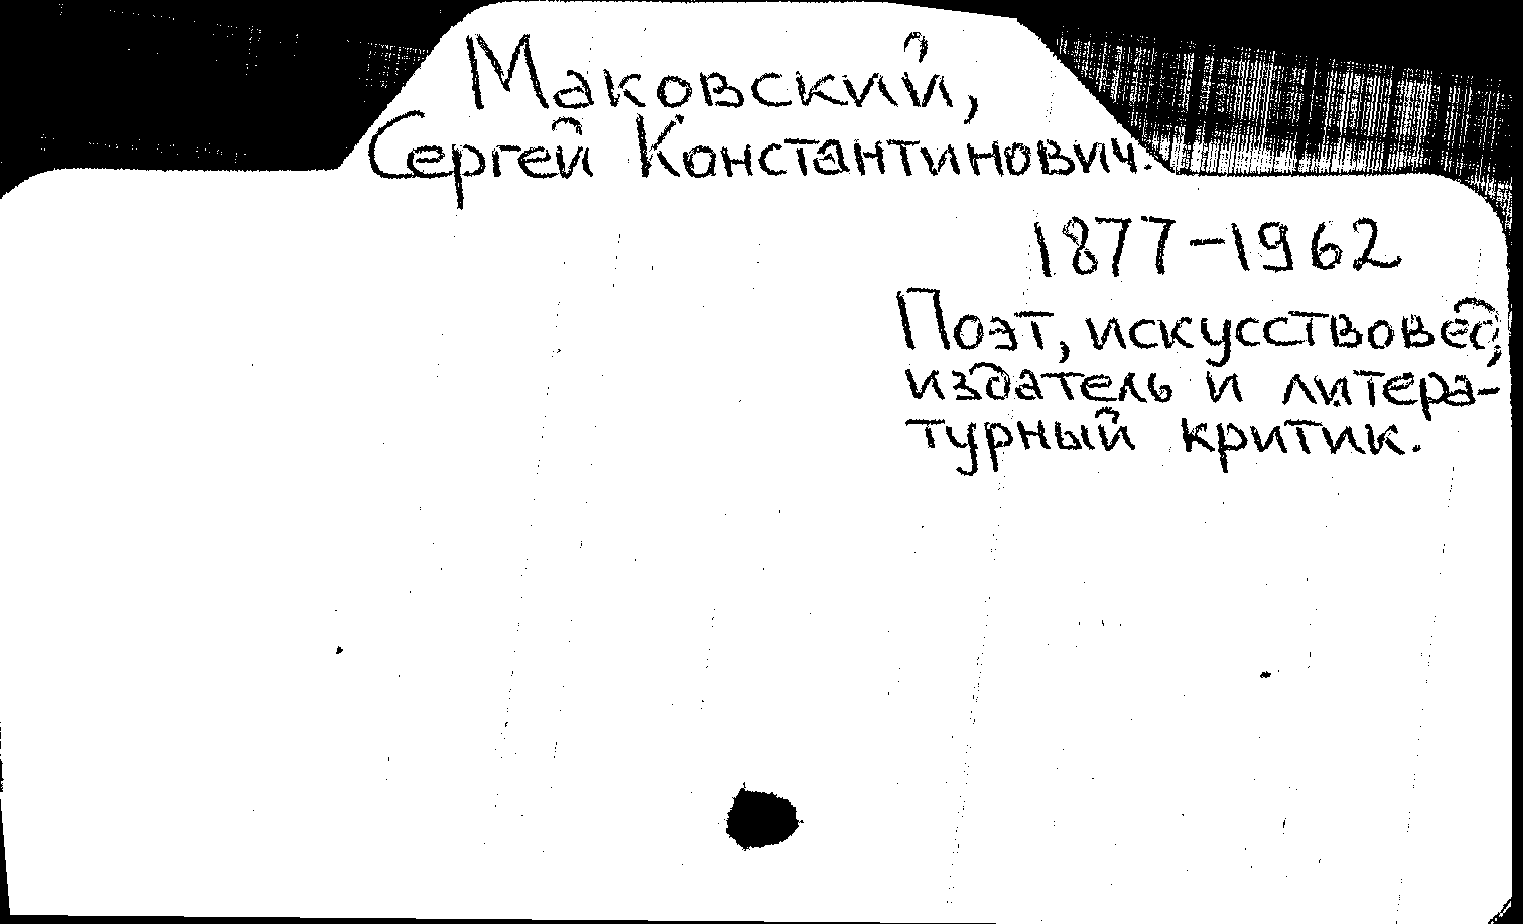 Маковский,
Сергей Константинович.
1877-1962
Поэт, искусствовед,
издатель и литера-
турный критик.